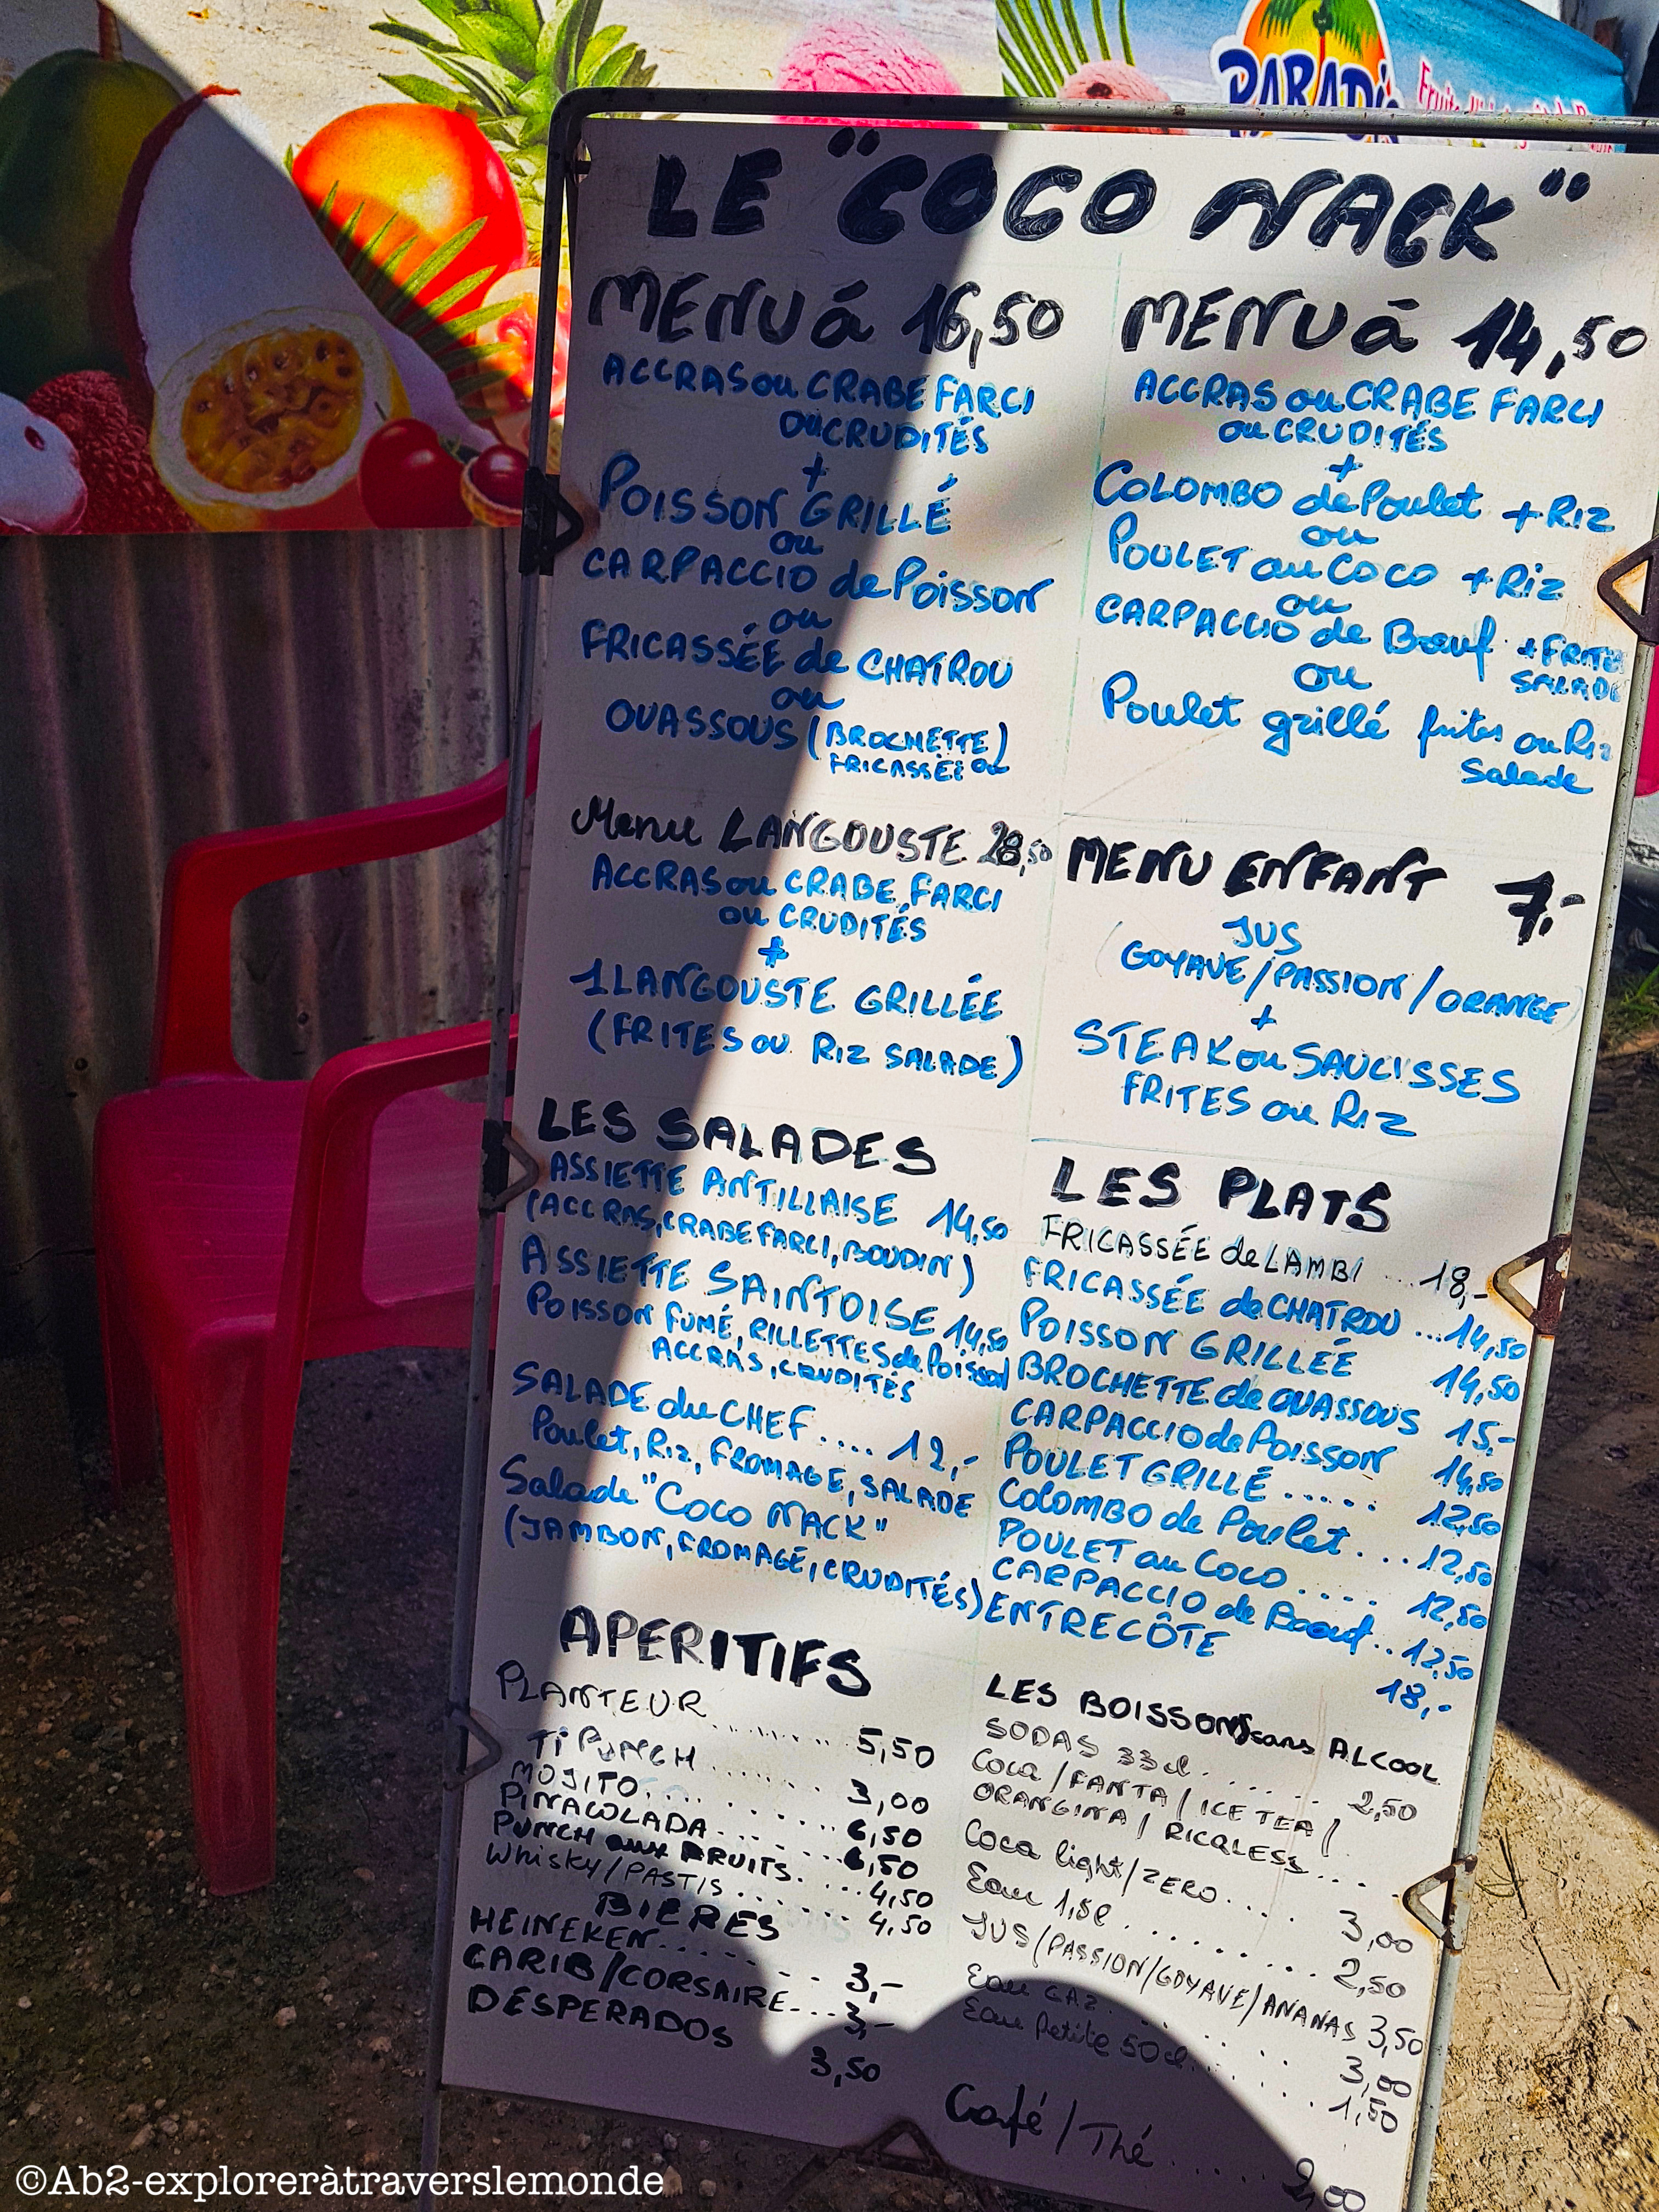 PARADIS
LE "COCO NACK"
MENU à 16,50
ACCRAS ou CRABE FARCI
ou CRUDITÉS
+
POISSON GRILLÉ
ou
CARPACCIO de Poisson
ou
FRICASSÉE de CHATROU
ou
OUASSOUS (BROCHETTE)
FRICASSÉE ou
MENU à 14,50
ACCRAS ou CRABE FARCI
ou CRUDITÉS
+
COLOMBO de Poulet + Riz
ou
POULET au Coco + Riz
ou
CARPACCIO de Bœuf + FRITES
SALADE
ou
Poulet grillé frites ou Riz
Salade
Menu LANGOUSTE 28,50
ACCRAS ou CRABE FARCI
ou CRUDITÉS
+
1 LANGOUSTE GRILLÉE
(FRITES ou RIZ SALADE)
MENU ENFANT 7,-
JUS
(GOYAVE/PASSION/ORANGE)
+
STEAK ou SAUCISSES
FRITES ou Riz
LES SALADES
ASSIETTE ANTILLAISE 14,50
(ACCRAS, CRABE FARCI, BOUDIN)
ASSIETTE SAINTOISE 14,50
POISSON FUMÉ, RILLETTES de Poisson
ACCRAS, CRUDITÉS
SALADE du CHEF .... 12,-
Poulet, Riz, FROMAGE, SALADE
Salade "Coco NACK"
(JAMBON, FROMAGE, CRUDITÉS)
LES PLATS
FRICASSÉE de LAMBI ... 18,-
FRICASSÉE de CHATROU ... 14,50
POISSON GRILLÉE 14,50
BROCHETTE de OUASSOUS 15,-
CARPACCIO de Poisson 14,50
POULET GRILLÉ ..... 12,50
COLOMBO de Poulet ... 12,50
POULET au Coco .... 12,50
CARPACCIO de Boeuf .. 12,50
ENTRECÔTE 18,-
APERITIFS
PLANTEUR ........ 5,50
Ti PUNCH ....... 3,00
MOJITO ........ 6,50
PINACOLADA ...... 6,50
PUNCH aux FRUITS .... 4,50
Whisky/PASTIS ...... 4,50
BIERES
HEINEKEN ........ 3,-
CARIB/CORSAIRE .... 3,-
DESPERADOS 3,50
LES BOISSONS sans ALCOOL
SODAS 33cl ...... 2,50
Coca / FANTA / ICE TEA /
ORANGINA / RICQLESS ....
Coca light/ZERO .... 3,00
Eau 1,5l ........ 2,50
JUS/PASSION/GOYAVE/ANANAS 3,50
Eau GAZ ...... 3,00
Eau Petite 50cl ..... 1,50
Café / Thé ...... 2,00
©Ab2-exploreràtraverslemonde